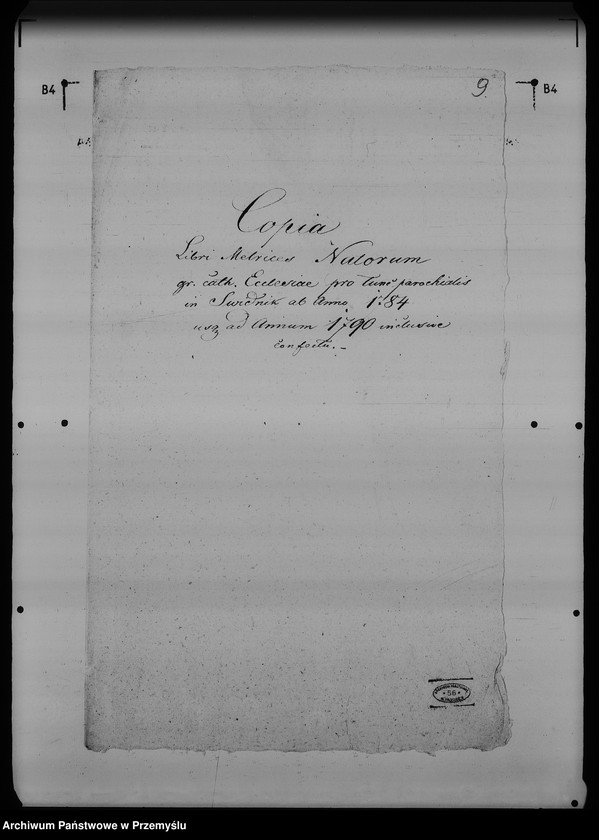 B4
B4
9.
Copia
Libri Metrices Natorum
gr. cath. Ecclesiae pro tunc parochialis
in Swidnik ab Anno 1784
usq ad Annum 1790 inclusive
confecta.
56
Archiwum Państwowe w Przemyślu